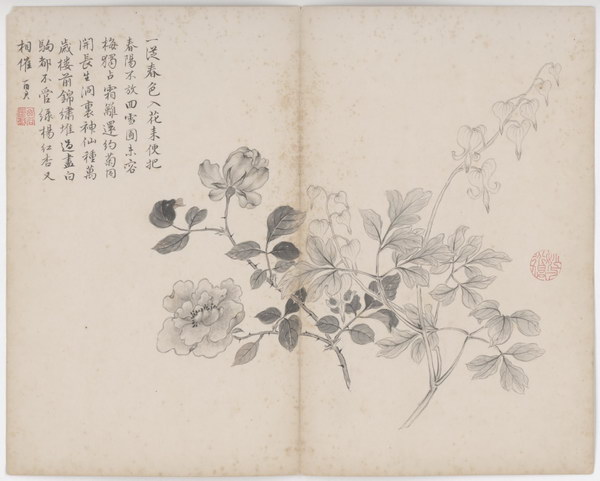 一從春色入花来便把
春陽不放回雪圃未容
梅獨占霜籬還約菊同
開長生洞裏神仙種萬
歲樓前錦繡堆過盡白
駒都不管綠楊紅杏又
相催